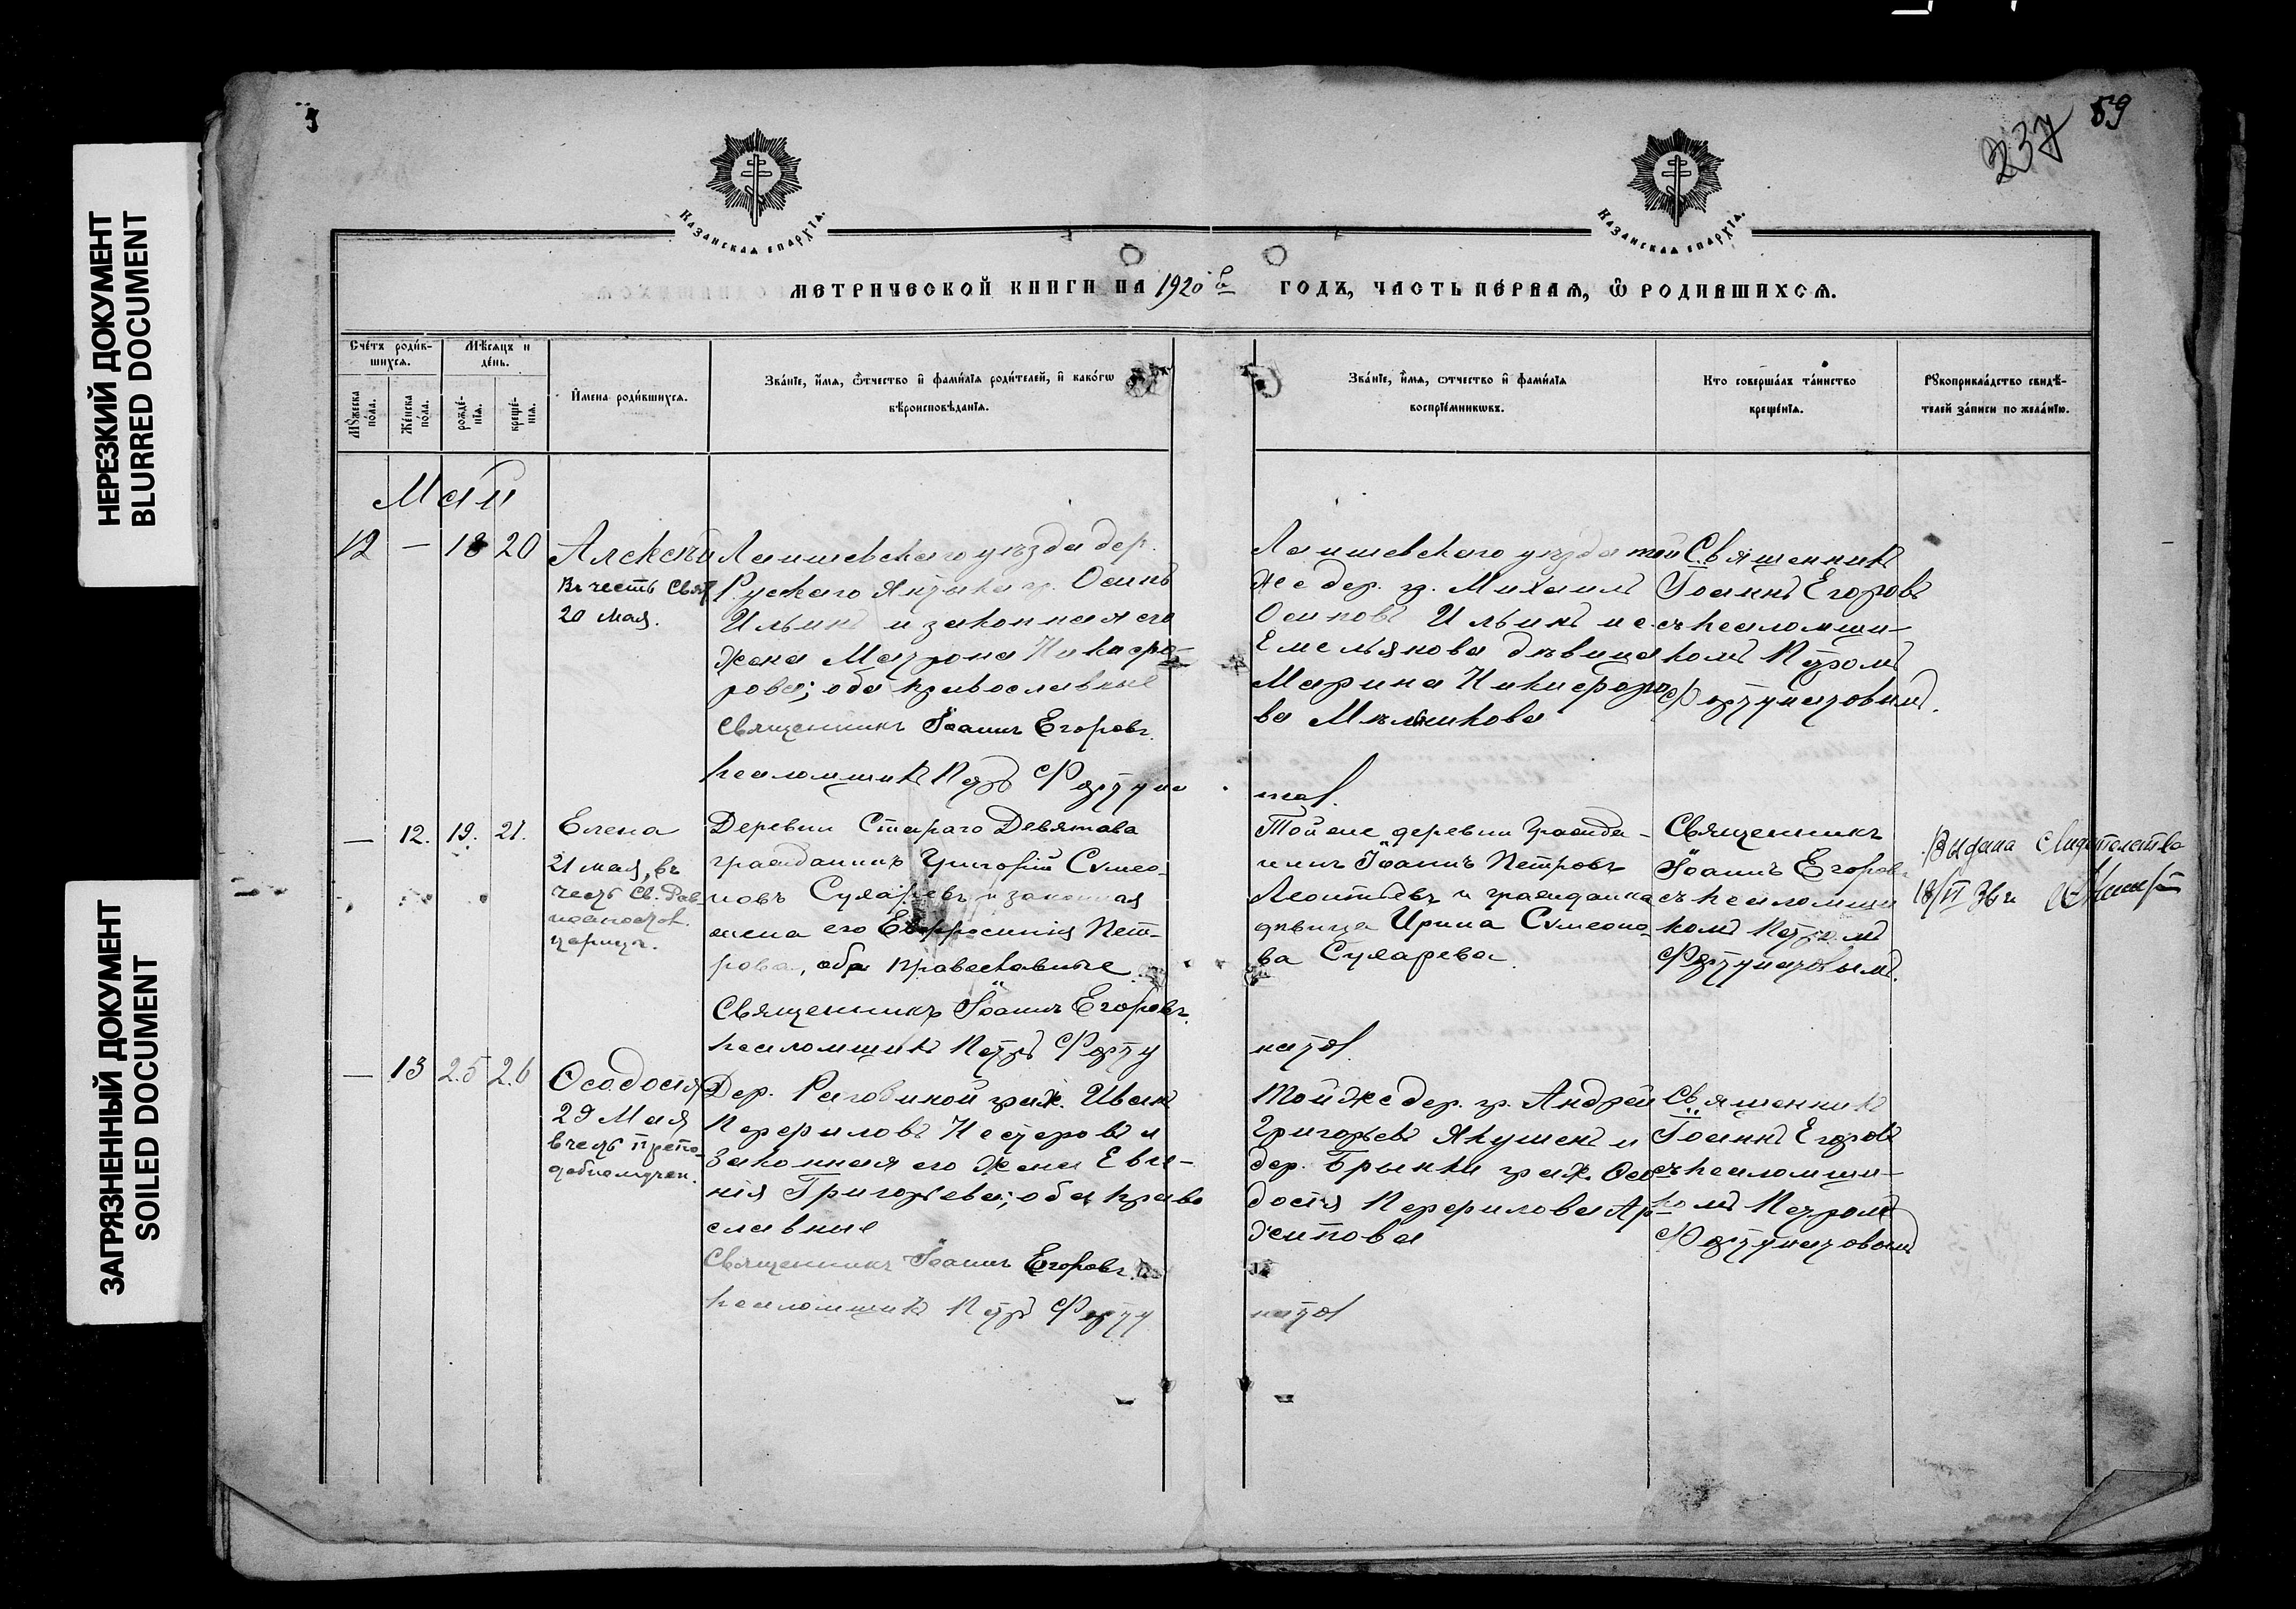 НЕРЕЗКИЙ ДОКУМЕНТ
BLURRED DOCUMENT
ЗАГРЯЗНЕННЫЙ ДОКУМЕНТ
SOILED DOCUMENT
237
59
Казанская епархїѧ.
Казанская епархїѧ.
МЕТРИЧЕСКОЙ КНИГИ НА 1920 й ГОДЪ, ЧАСТЬ ПЕРВАЯ, Ѿ РОДИВШИХСѦ.
Счетъ родившихсѧ.
Мѣсяцъ и день.
Мꙋжеска пола.
Женска пола.
рожденїѧ.
крещенїѧ.
Имена родившихсѧ.
Званїе, имѧ, ѿчество и фамилїѧ родителей, и какогѡ
вѣроисповѣданїѧ.
Званїе, имѧ, ѿчество и фамилїѧ
воспрїемникѡвъ.
Кто совершалъ таинство
крещенїѧ.
Рꙋкоприкладство свидѣ-
телей записи по желанїю.
Май
12 — 18 20
Алексѣй
Въ честь Свят
20 мая.
Лаишевскаго уѣзда дер.
Рускаго Янтыка гр. Осипъ
Ильинъ и законная его
жена Матрона Никифо-
рова; оба православные
Священникъ Іоаннъ Егоровъ.
псаломщикъ Петръ Фортуна
Лаишевскаго уѣзда той
же дер. гр. Михаилъ
Осиповъ Ильинъ и с.
Емельянова дѣвица
Марина Никифоро
ва Мельникова
тов.
Священникъ
Іоаннъ Егоровъ
съ псаломщи-
комъ Петромъ
Фортунатовымъ.
— 12. 19. 21.
Елена
21 мая, въ
честь Св. Рав-
ноапостол.
царицы.
Деревни Стараго Девятова
гражданинъ Григорій Сѵмео-
новъ Сухаревъ и законная
жена его Евфросинія Пет-
рова, оба православные.
Священникъ Іоаннъ Егоровъ.
псаломщикъ Петръ Форту
Той же деревни гражда-
нинъ Іоаннъ Петровъ
Леонтьевъ и гражданка
дѣвица Ирина Сѵмеоно-
ва Сухарева.
натов.
Священникъ
Іоаннъ Егоровъ
съ псаломщи
комъ Петромъ
Фортунатовымъ.
Выдана свидетельства
18/VI 36 г.
— 13 25 26
Ѳеодосія
29 Мая
в честь препо-
добномучен.
Дер. Раговиной граж. Иванъ
Перфиловъ Нестеровъ и
законная его жена Евге-
нія Григорьева; оба право
славные
Священникъ Іоаннъ Егоровъ.
псаломщикъ Петръ Форту
Той же дер. гр. Андрей
Григорьевъ Якушен и
дер. Брынки граж. Ѳео
досія Перфилова Ар-
хипова
натов
Священникъ
Іоаннъ Егоровъ
съ псаломщи-
комъ Петромъ
Фортунатовымъ